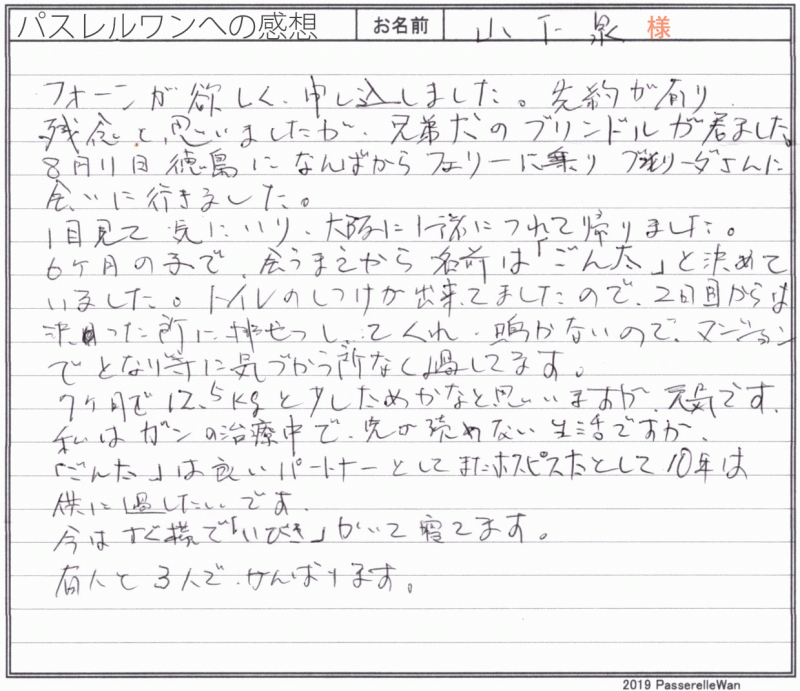 パスレルワンへの感想 お名前 山下泉 様
フォーンが欲しく、申し込しました。先約が有り
残念と思いましたが、兄弟犬のブリンドルが居ました。
8月11日徳島になんばからフェリーに乗り ブリーダさんに
会いに行きました。
1目見て気にいり、大阪に1諸につれて帰りました。
6ヶ月の子で、会うまえから名前は「ごん太」と決めて
いました。トイレのしつけが出来てましたので、2日目からは
決まった所に排せつしてくれ、鳴かないので、マンション
でとなり等に気づかう所なく過してます。
7ヶ月で12.5kgと少しためかなと思いますが、元気です。
私はガンの治療中で、先の読めない生活ですが、
「ごん太」は良いパートナーとしてまたホスピス犬として10年は
供に過したいです。
今はすぐ横で「いびき」かいて寝てます。
友人と3人で、がんばります。
2019 PasserelleWan